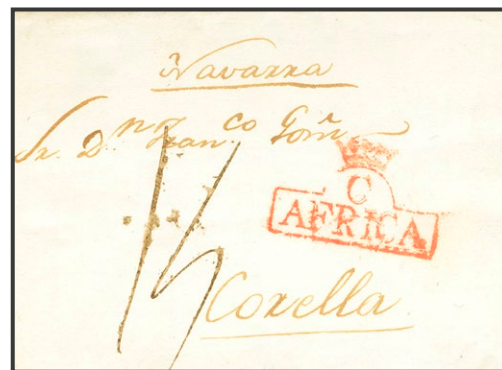 Navarra
Sr. Dn Franco Goñi
C
AFRICA
Corella